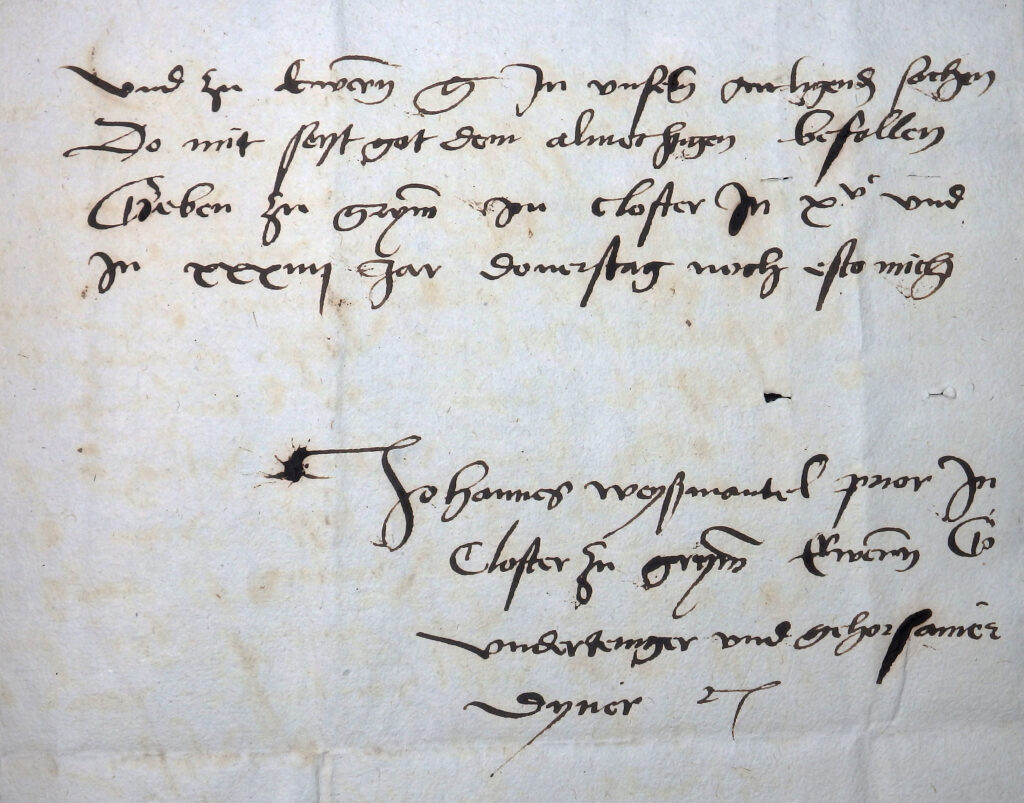 vnd zu Ewern g In vnsern anligend sachen
Do mit seyt got dem almechtigen befollen
Geben zu grym im closter In xvᶜ vnd
In xxxiiij Jar donerstag noch esto mich
Johannes weyßmantel prior In
Closter zu grym Ewern G
vnderteniger vnd gehorsamer
dyner